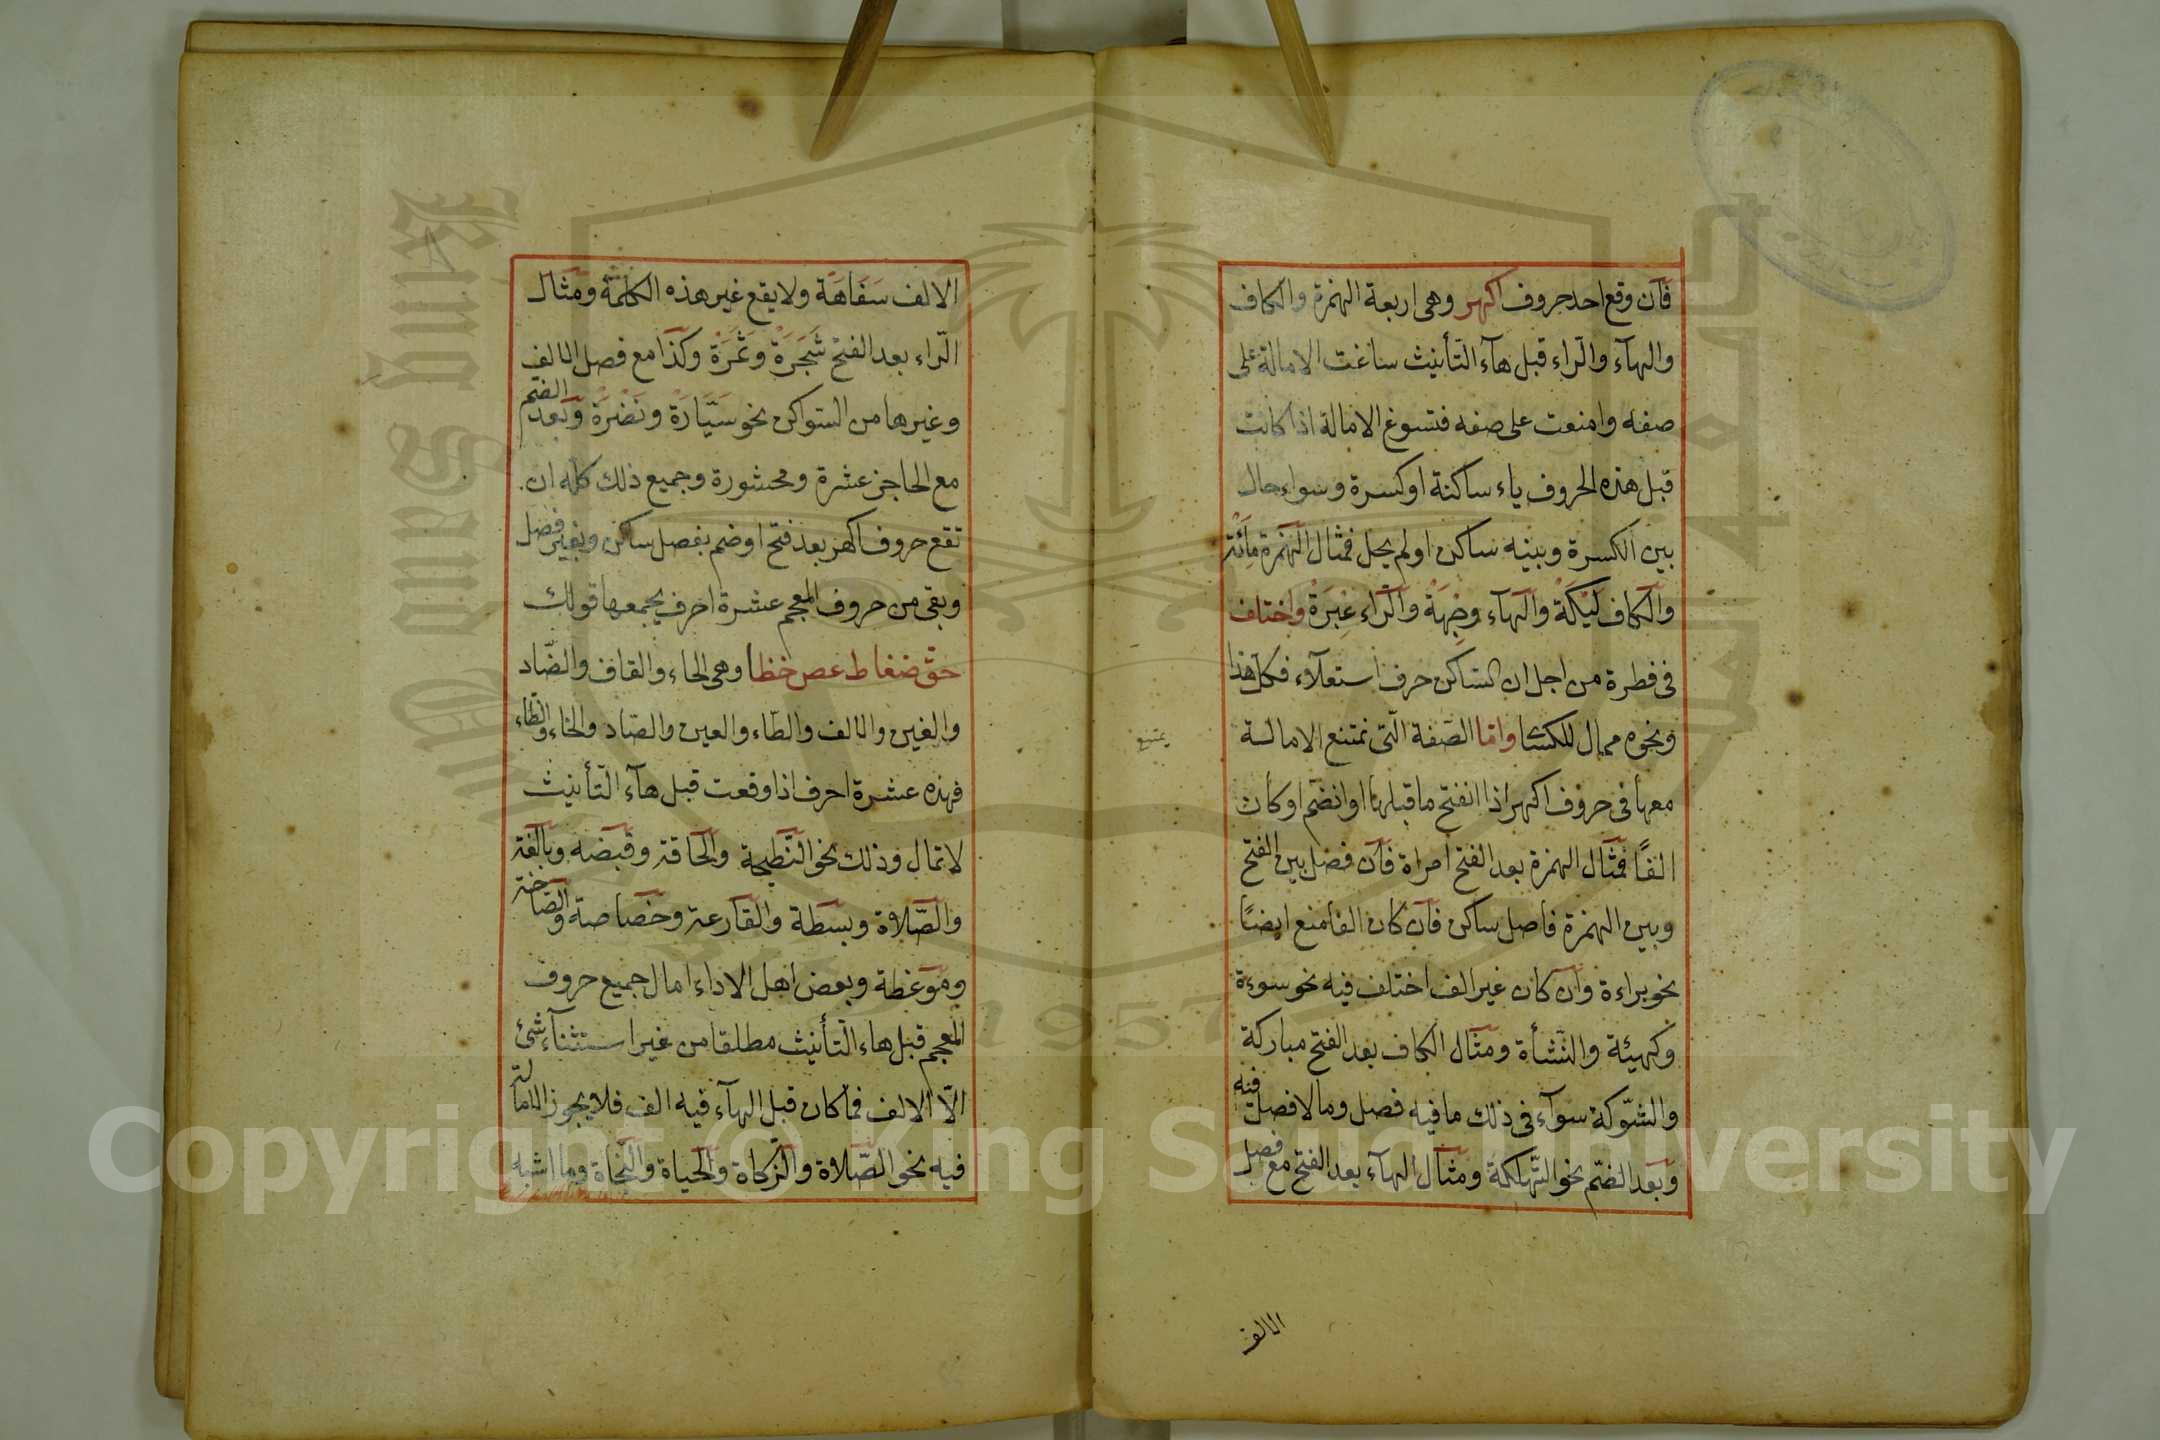 فان وقع احد حروف اكهر وهى اربعة الهمزة والكاف
والهآء والرّاء قبل هآء التّأنيث ساغت الامالة على
صفه وامنعت على صفه فتسوغ الامالة اذا كانت
قبل هذه الحروف ياء ساكنة او كسرة وسواء حال
بين الكسرة وبينه ساكن اولم يحل فمثال الهمزة مائة
والكاف ليكة والهآء وجهة والرّاء عبرة واختلف
فى فطرة من اجل ان الساكن حرف استعلآء فكل هذا
ونحوه ممال للكسائى وامّا الصّفة الّتى تمتنع الامالة
معها فى حروف اكهر اذا انفتح ما قبلها او انضم او كان
الفًا فمثال الهمزة بعد الفتح امراة فان فصل بين الفتح
وبين الهمزة فاصل ساكن فان كان الفا منع ايضًا
نحو براءة وان كان غير الف اختلف فيه نحو سوءة
وكهيئة والنّشأة ومثال الكاف بعد الفتح مباركة
والشّوكة سوآء فى ذلك ما فيه فصل وما لا فصل فيه
وبعد الضّم نحو التّهلكة ومثال الهآء بعد الفتح مع فصل
الالف
يمتنع
الالف سفاهة ولا يقع غير هذه الكلمة ومثال
الرّاء بعد الفتح شجرة وثمرة وكذا مع فصل الالف
وغيرها من السّواكن نحو سيّارة ونضرة وبعد الضم
مع الحاجز عشرة ومحشورة وجميع ذلك كله ان
تقع حروف اكهر بعد فتح او ضم بفصل ساكن وبغير فصل
وبقى من حروف المعجم عشرة احرف يجمعها قولك
حق ضغاط عص خظا وهى الحاء والقاف والضّاد
والغين والالف والطّاء والعين والصّاد والخاء والظاء
فهذه عشرة احرف اذا وقعت قبل هآء التّأنيث
لا تمال وذلك نحو النّطيحة والحاقة وقبضه وبالغة
والصّلاة وبسطة والقارعة وخصاصة والصّاخة
وموعظة وبعض اهل الاداء امال جميع حروف
المعجم قبل هاء التّأنيث مطلقا من غير استثنآء شئ
الّا الالف فما كان قبل الهآء فيه الف فلا يجوز الامالة
فيه نحو الصّلاة والزّكاة والحياة والنّجاة وما اشبه
Copyright © King Saud University
King Saud University
1957